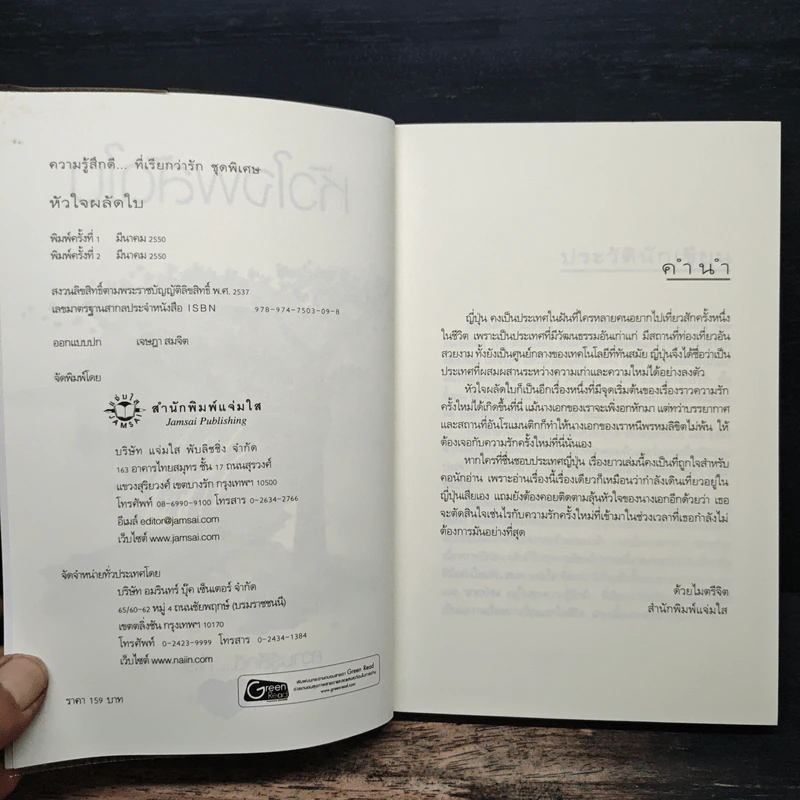 ความรู้สึกดี... ที่เรียกว่ารัก ชุดพิเศษ
หัวใจผลัดใบ
พิมพ์ครั้งที่ 1 มีนาคม 2550
พิมพ์ครั้งที่ 2 มีนาคม 2550
สงวนลิขสิทธิ์ตามพระราชบัญญัติลิขสิทธิ์ พ.ศ. 2537
เลขมาตรฐานสากลประจำหนังสือ ISBN 978-974-7503-09-8
ออกแบบปก เจษฎา สมจิต
จัดพิมพ์โดย
แจ่มใส
JAMSAI
สำนักพิมพ์แจ่มใส
Jamsai Publishing
บริษัท แจ่มใส พับลิชชิ่ง จำกัด
163 อาคารไทยสมุทร ชั้น 17 ถนนสุรวงศ์
แขวงสุริยวงศ์ เขตบางรัก กรุงเทพฯ 10500
โทรศัพท์ 08-6990-9100 โทรสาร 0-2634-2766
อีเมล์ editor@jamsai.com
เว็บไซต์ www.jamsai.com
จัดจำหน่ายทั่วประเทศโดย
บริษัท อมรินทร์ บุ๊ค เซ็นเตอร์ จำกัด
65/60-62 หมู่ 4 ถนนชัยพฤกษ์ (บรมราชชนนี)
เขตตลิ่งชัน กรุงเทพฯ 10170
โทรศัพท์ 0-2423-9999 โทรสาร 0-2434-1384
เว็บไซต์ www.naiin.com
Green Read
www.greenread.com
ราคา 159 บาท
คำนำ
ญี่ปุ่น คงเป็นประเทศในฝันที่ใครหลายคนอยากไปเที่ยวสักครั้งหนึ่ง
ในชีวิต เพราะเป็นประเทศที่มีวัฒนธรรมอันเก่าแก่ มีสถานที่ท่องเที่ยวอัน
สวยงาม ทั้งยังเป็นศูนย์กลางของเทคโนโลยีที่ทันสมัย ญี่ปุ่นจึงได้ชื่อว่าเป็น
ประเทศที่ผสมผสานระหว่างความเก่าและความใหม่ได้อย่างลงตัว
หัวใจผลัดใบก็เป็นอีกเรื่องหนึ่งที่มีจุดเริ่มต้นของเรื่องราวความรัก
ครั้งใหม่ได้เกิดขึ้นที่นี่ แม้นางเอกของเราจะเพิ่งอกหักมา แต่ทว่าบรรยากาศ
และสถานที่อันโรแมนติกก็ทำให้นางเอกของเราหนีพรหมลิขิตไม่พ้น ให้
ต้องเจอกับความรักครั้งใหม่ที่นี่นั่นเอง
หากใครที่ชื่นชอบประเทศญี่ปุ่น เรื่องยาวเล่มนี้คงเป็นที่ถูกใจสำหรับ
คอนักอ่าน เพราะอ่านเรื่องนี้เรื่องเดียวก็เหมือนว่ากำลังเดินเที่ยวอยู่ใน
ญี่ปุ่นเสียเอง แถมยังต้องคอยติดตามลุ้นหัวใจของนางเอกอีกด้วยว่า เธอ
จะตัดสินใจเช่นไรกับความรักครั้งใหม่ที่เข้ามาในช่วงเวลาที่เธอกำลังไม่
ต้องการมันอย่างที่สุด
ด้วยไมตรีจิต
สำนักพิมพ์แจ่มใส